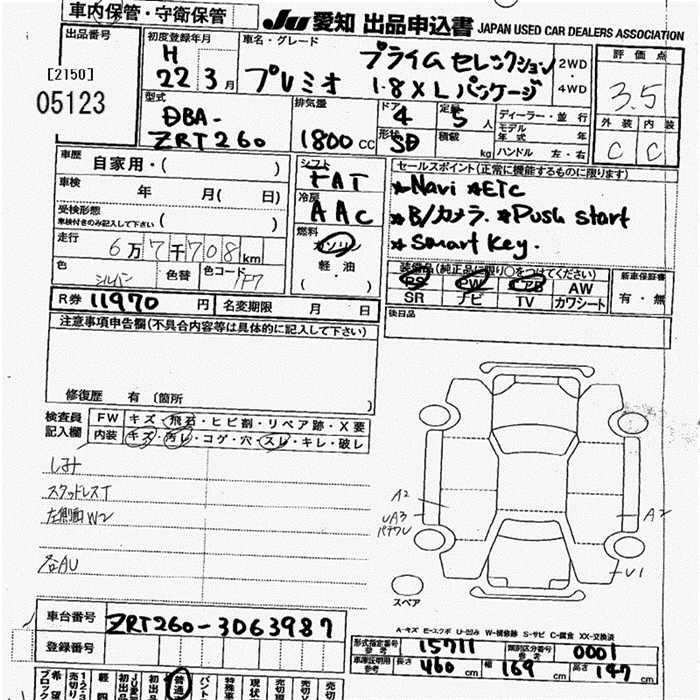 車内保管・守衛保管
JU 愛知 出品申込書 JAPAN USED CAR DEALERS ASSOCIATION
出品番号
[2150]
05123
初度登録年月
H
22 3月
車名・グレード
プレミオ
プライム セレクション
1.8 X L パッケージ
2WD・4WD
評価点
3.5
外装 内装
C C
型式
DBA-
ZRT260
排気量
1800 CC
ドア
4
形状
SD
定員
5人
積載
kg
ディーラー・並行
モデル年式 年
ハンドル 左・右
車歴 自家用・( )
車検 年 月( 日)
受検形態
車検付きのみ記入して下さい ( )
走行 6万7千708km
色 シルバー 色替 色コード 1F7
シフト
FAT
冷房
AAC
燃料
ガソリン
軽・油
( )
セールスポイント(正常に機能するものに限ります)
★Navi ★ETC
★B/カメラ. ★Push start
★Smart Key.
装備品(純正品に限り○をつけてください)
PS PW エアB AW
SR ナビ TV カワシート
新車保証書
有・無
R券 11970 円 名変期限 月 日
後日品
注意事項申告欄(不具合内容等は具体的に記入して下さい)
修復歴 有 〔箇所 〕
検査員
記入欄
FW キズ・飛石・ヒビ割・リペア跡・X要
内装 キズ・汚レ・コゲ・穴・スレ・キレ・破レ
しみ
スタッドレスT
左側面W2
各AU
A2
UA3
パテWU
A2
U1
スペア
A-キズ E-エクボ U-凹み W-補修跡 S-サビ C-腐食 XX-交換済
車台番号 ZRT260-3063987
登録番号
形式指定番号 参考 15711 類別区分番号 参考 0001
車庫証明用 参考 長さ 460 cm 幅 169 cm 高さ 147 cm
普通